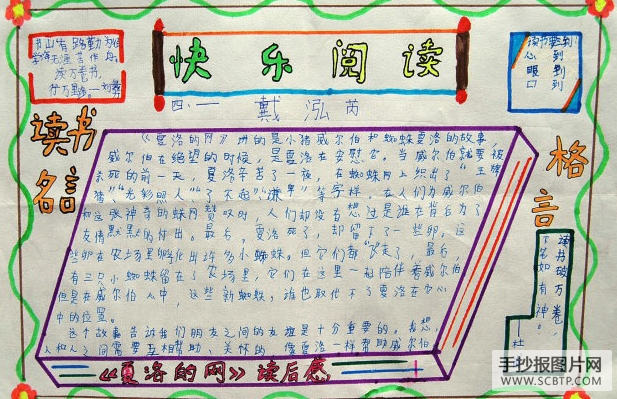 快乐阅读
四、一 戴泓芮
书山有路勤为径
学海无涯苦作舟
读万卷书,
行万里路。
读书要到
心 到
眼 到
口 到
读书
名言
格言
读书破万卷,
下笔如有神。
——杜
《夏洛的网》讲的是小猪威尔伯和蜘蛛夏洛的故事
威尔伯在绝望的时候,是夏洛在安慰它。当威尔伯就要被
杀死的前一天,夏洛辛苦了一夜,在蜘蛛网上织出了“王牌
猪”“光彩照人”“了不起”“谦卑”等字样。在人们为威尔伯
和这张神奇的蛛网赞叹时,人们却没有想过是谁在背后为了
友情默默的付出。最后,夏洛死了,却留下了一些卵。这
些卵在农场里孵化出许多小蜘蛛。但它们都飞走了,最后,
有三只小蜘蛛留在了农场里,它们在这里一起陪伴着威尔伯
但是在威尔伯心中,这些新蜘蛛,谁也取代不了夏洛在它心
中的位置。
这个故事告诉我们朋友之间的友谊是十分重要的。我想,
人和人之间需要互相帮助、关怀的 像夏洛一样帮助威尔伯
《夏洛的网》读后感
手抄报图片网
WWW.SCBTP.COM